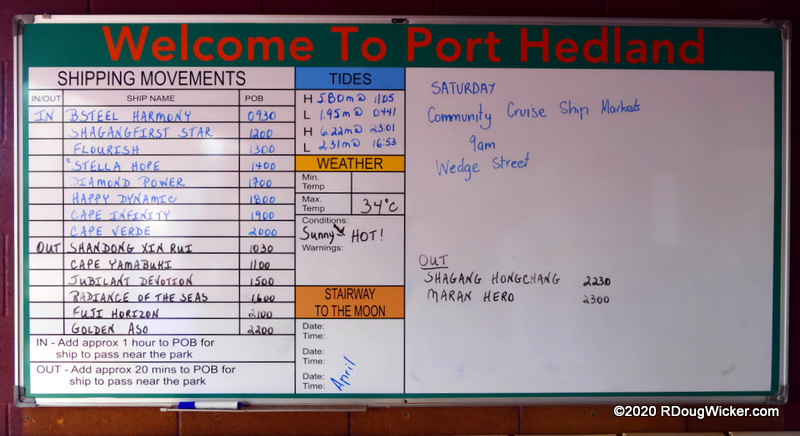 Welcome To Port Hedland
SHIPPING MOVEMENTS
IN/OUT SHIP NAME POB
IN BSTEEL HARMONY 0930
SHAGANGFIRST STAR 1200
FLOURISH 1300
STELLA HOPE 1400
DIAMOND POWER 1700
HAPPY DYNAMIC 1800
CAPE INFINITY 1900
CAPE VERDE 2000
OUT SHANDONG XIN RUI 1030
CAPE YAMABUKI 1100
JUBILANT DEVOTION 1500
RADIANCE OF THE SEAS 1600
FUJI HORIZON 2100
GOLDEN ASO 2200
IN - Add approx 1 hour to POB for
ship to pass near the park
OUT - Add approx 20 mins to POB for
ship to pass near the park
TIDES
H 5.80m@ 11:05
L 1.95m@ 0441
H 6.22m@ 23:01
L 2.31m@ 16:53
WEATHER
Min.
Temp
Max.
Temp 34°C
Conditions:
Sunny HOT!
Warnings:
STAIRWAY
TO THE MOON
Date:
Time:
Date:
Time:
Date:
Time:
April
SATURDAY
Community Cruise Ship Markets
9am
Wedge Street
OUT
SHAGANG HONGCHANG 2230
MARAN HERO 2300
©2020 RDougWicker.com